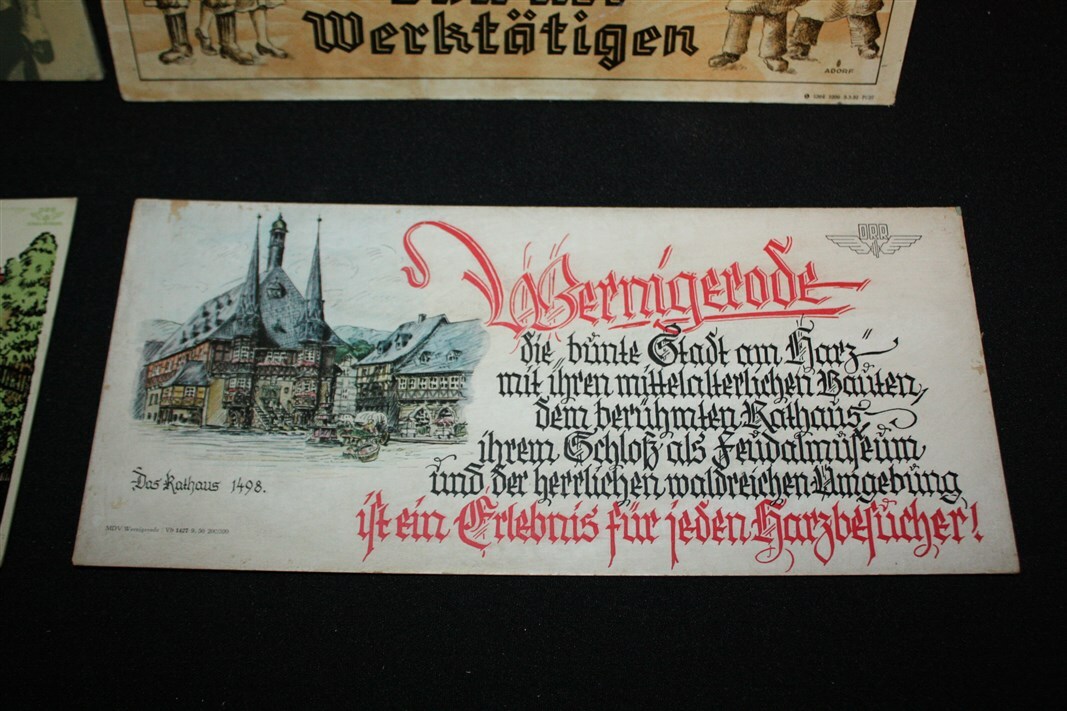 Werktätigen
ADORF
DRR
Wernigerode
die "bunte Stadt am Harz"
mit ihren mittelalterlichen Bauten,
dem berühmten Rathaus,
ihrem Schloß als Feudalmuseum
und der herrlichen waldreichen Umgebung
ist ein Erlebnis für jeden Harzbesucher!
Das Rathaus 1498.